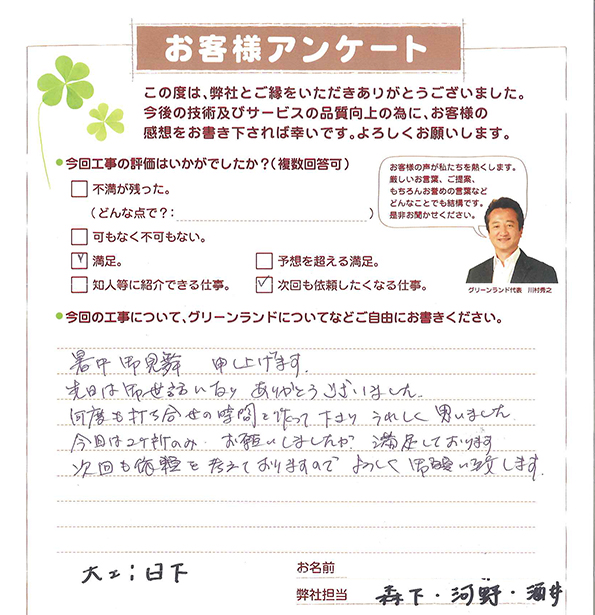 お客様アンケート
この度は、弊社とご縁をいただきありがとうございました。
今後の技術及びサービスの品質向上の為に、お客様の
感想をお書き下されば幸いです。よろしくお願いします。
●今回工事の評価はいかがでしたか?(複数回答可)
不満が残った。
(どんな点で?: )
可もなく不可もない。
満足。
予想を超える満足。
知人等に紹介できる仕事。
次回も依頼したくなる仕事。
お客様の声が私たちを熱くします。
厳しいお言葉、ご提案、
もちろんお誉めの言葉など
どんなことでも結構です。
是非お聞かせください。
グリーンランド代表 川村秀之
●今回の工事について、グリーンランドについてなどご自由にお書きください。
暑中御見舞 申し上げます.
先日は御世話いなり ありがとうございました.
何度も打ち合せの時間を作って下さり うれしく思いました
今回は2ヶ所のみ お願いしましたが 満足しております
次回も依頼を考えておりますので よろしく御願い致します.
大工:日下
お名前
弊社担当 森下・河野・酒井